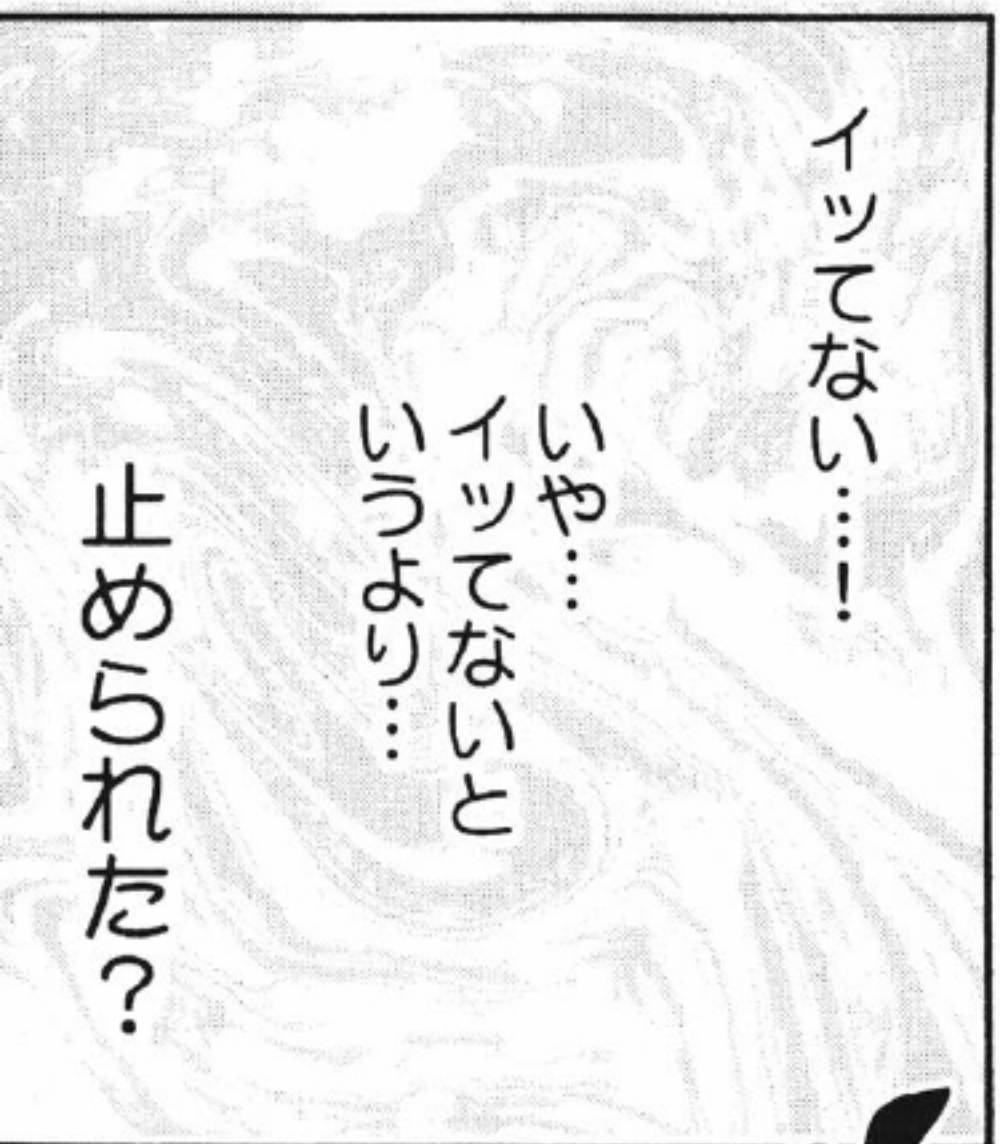 イッてない……！
いや…
イッてないと
いうより…
止められた？